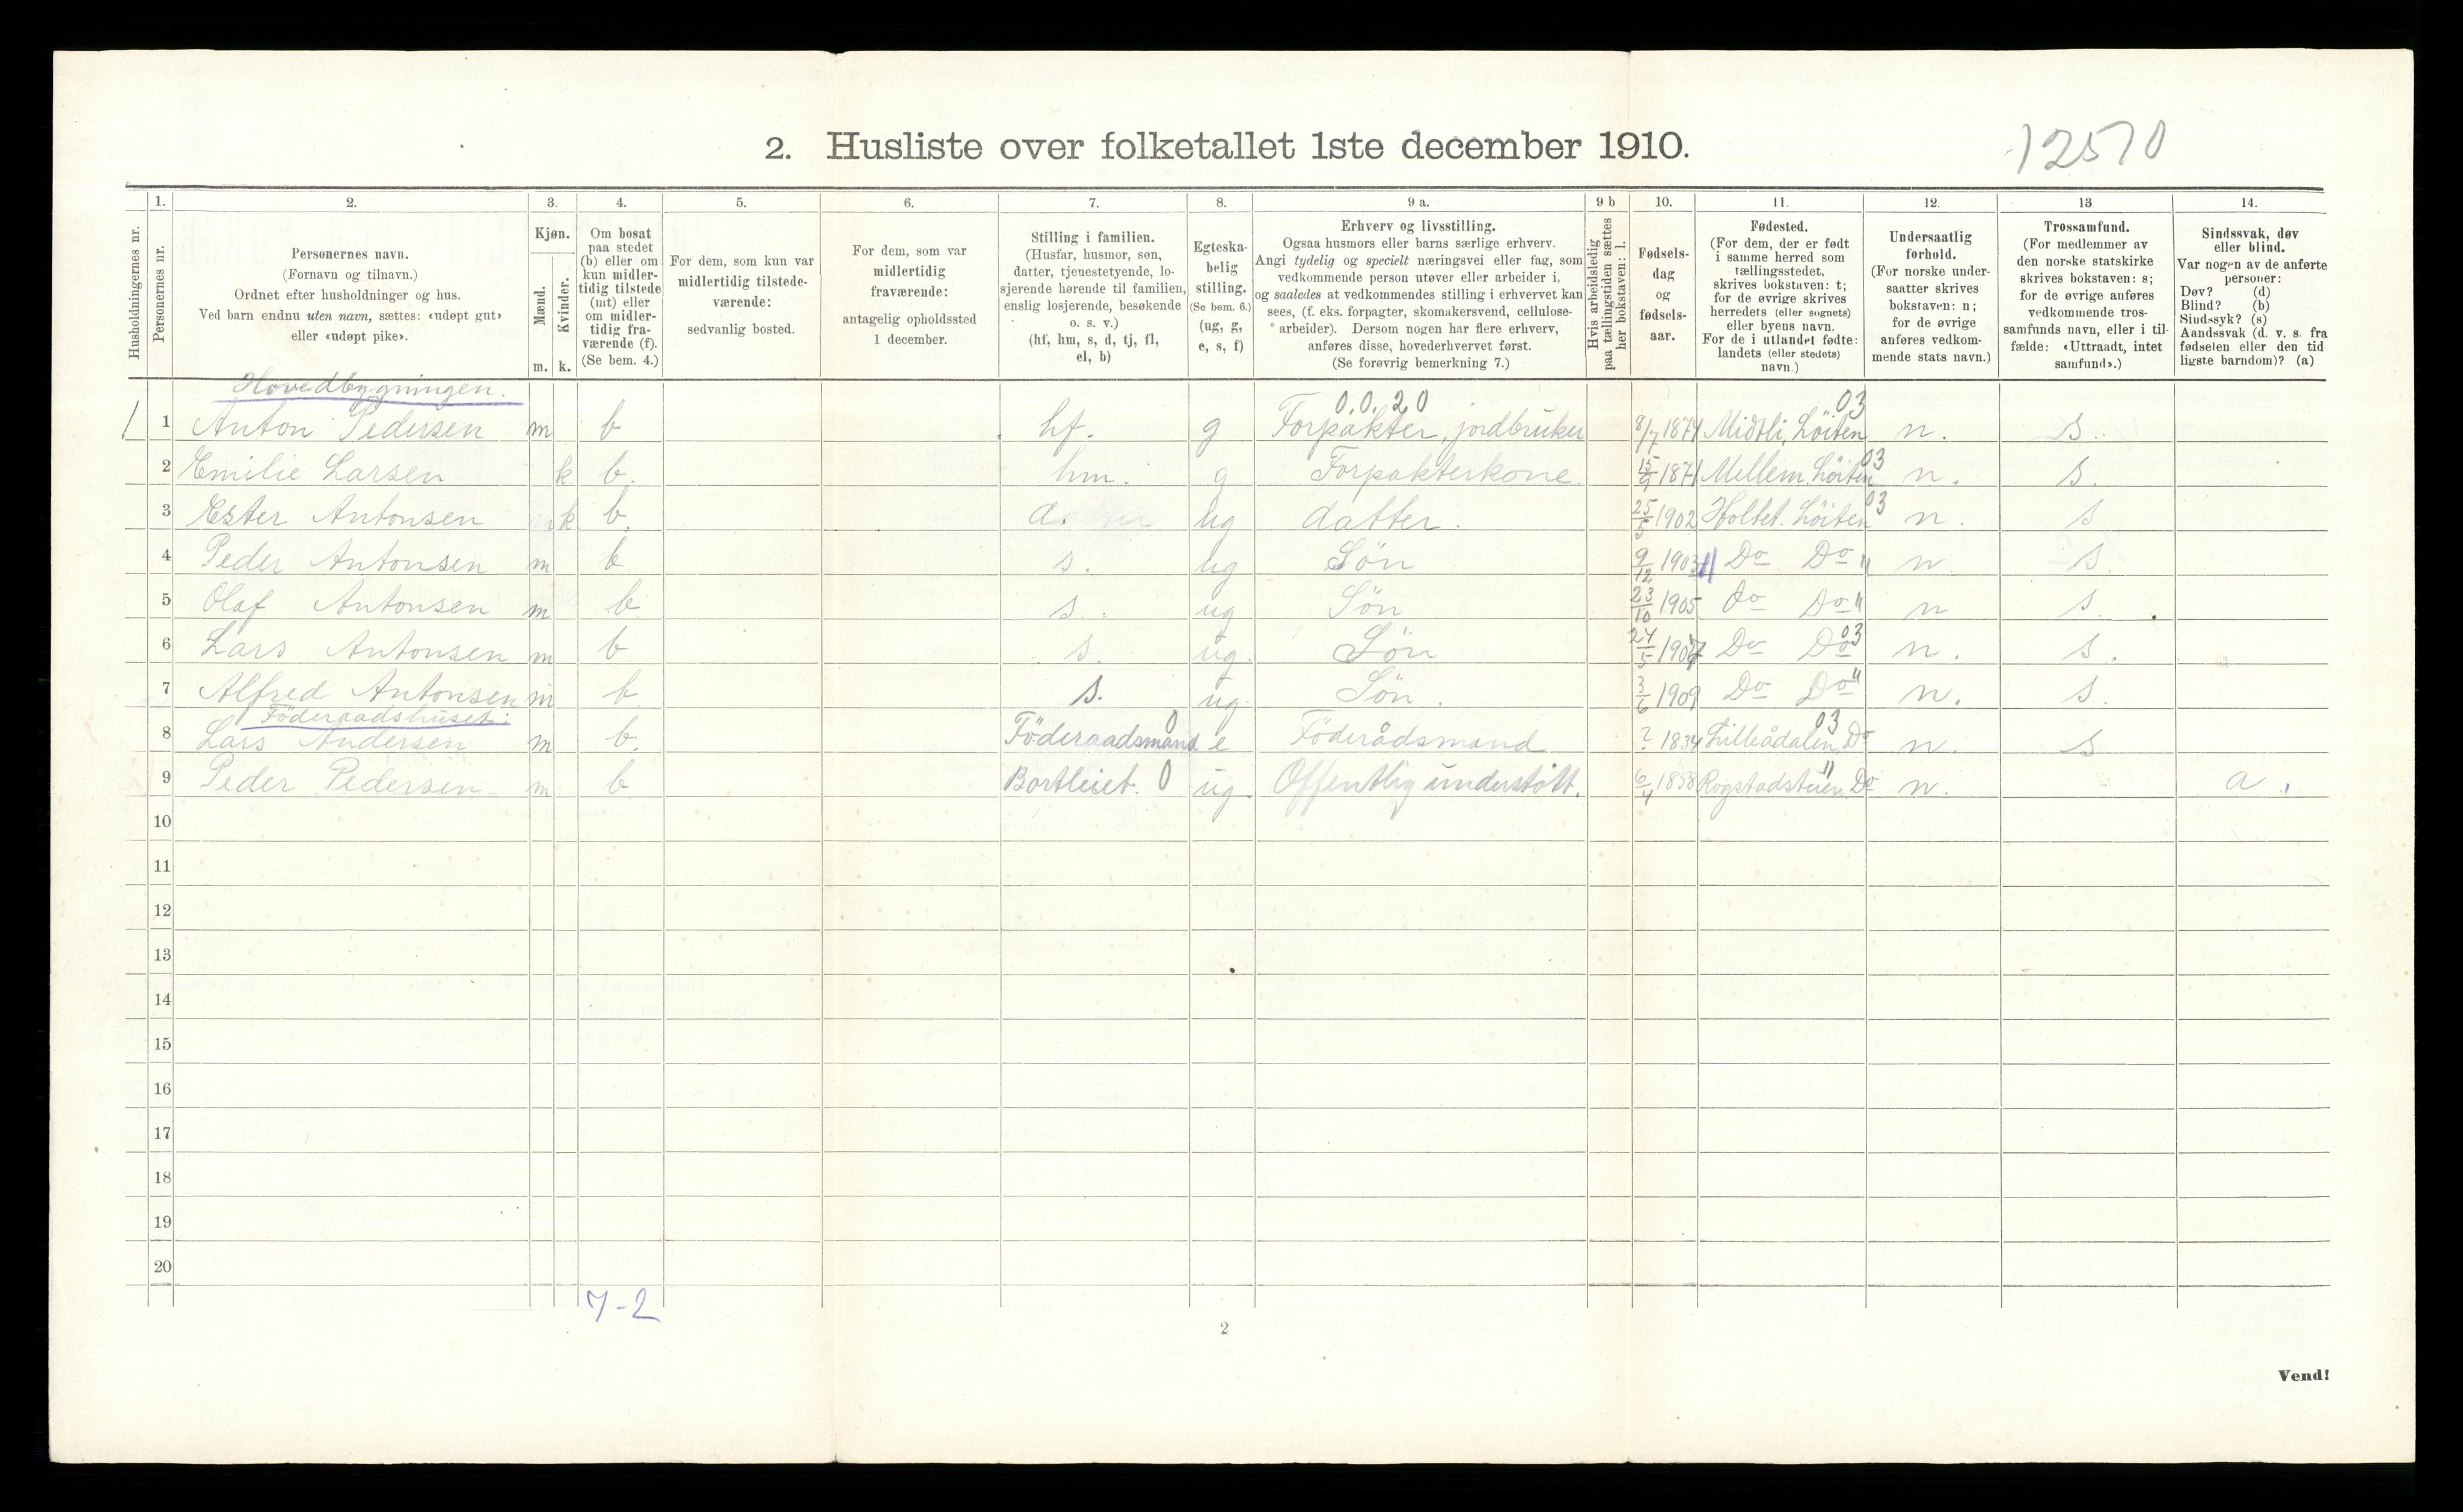 2. Husliste over folketallet 1ste december 1910.
12570
Husholdningernes nr.
1. Personernes nr.
2. Personernes navn.
(Fornavn og tilnavn.)
Ordnet efter husholdninger og hus.
Ved barn endnu uten navn, sættes: «udøpt gut»
eller «udøpt pike».
3. Kjøn.
Mænd. m.
Kvinder. k.
4. Om bosat
paa stedet
(b) eller om
kun midler-
tidig tilstede
(mt) eller
om midler-
tidig fra-
værende (f).
(Se bem. 4.)
5. For dem, som kun var
midlertidig tilstede-
værende:
sedvanlig bosted.
6. For dem, som var
midlertidig
fraværende:
antagelig opholdssted
1 december.
7. Stilling i familien.
(Husfar, husmor, søn,
datter, tjenestetyende, lo-
sjerende hørende til familien,
enslig losjerende, besøkende
o. s. v.)
(hf, hm, s, d, tj, fl,
el, b)
8. Egteska-
belig
stilling.
(Se bem. 6.)
(ug, g,
e, s, f)
9 a. Erhverv og livsstilling.
Ogsaa husmors eller barns særlige erhverv.
Angi tydelig og specielt næringsvei eller fag, som
vedkommende person utøver eller arbeider i,
og saaledes at vedkommendes stilling i erhvervet kan
sees, (f. eks. forpagter, skomakersvend, cellulose-
arbeider). Dersom nogen har flere erhverv,
anføres disse, hovederhvervet først.
(Se forøvrig bemerkning 7.)
9 b Hvis arbeidsledig
paa tællingstiden sættes
her bokstaven: l.
10. Fødsels-
dag
og
fødsels-
aar.
11. Fødested.
(For dem, der er født
i samme herred som
tællingsstedet,
skrives bokstaven: t;
for de øvrige skrives
herredets (eller sognets)
eller byens navn.
For de i utlandet fødte:
landets (eller stedets)
navn.)
12. Undersaatlig
forhold.
(For norske under-
saatter skrives
bokstaven: n;
for de øvrige
anføres vedkom-
mende stats navn.)
13 Trossamfund.
(For medlemmer av
den norske statskirke
skrives bokstaven: s;
for de øvrige anføres
vedkommende tros-
samfunds navn, eller i til-
fælde: «Uttraadt, intet
samfund».)
14. Sindssvak, døv
eller blind.
Var nogen av de anførte
personer:
Døv? (d)
Blind? (b)
Sindssyk? (s)
Aandssvak (d. v. s. fra
fødselen eller den tid
ligste barndom)? (a)
Hovedbygningen.
0.0.20 03
1 Anton Pedersen m b hf. g Forpakter, jordbruker 8/7 1874 Midtli, Löiten n. s.
2 Emilie Larsen k b. hm. g Forpakterkone. 15/9 1871 Mellem, Löiten 03 n. s.
3 Ester Antonsen k b. d. ug datter. 25/5 1902 Holtet. Löiten 03 n. s
4 Peder Antonsen m b s. ug Søn 9/12 1903 " Do Do " n s.
5 Olaf Antonsen m b s. ug Søn 23/10 1905 do Do " n s.
6 Lars Antonsen m b s. ug. Søn 24/5 1907 Do Do 03 n. s.
7 Alfred Antonsen m b s. ug Søn. 3/6 1909 Do Do " n. s.
Föderaadshuset:
8 Lars Andersen m b. Föderaadsmand 0 e Föderådsmand ? 1834 Lilleådalen, Do 03 n. s
9 Peder Pedersen m b Bortleiet. 0 ug. Offentlig understöit. 6/4 1858 Rogstadsteien, Do " n. a.
10
11
12
13
14
15
16
17
18
19
20
7-2
2
Vend!